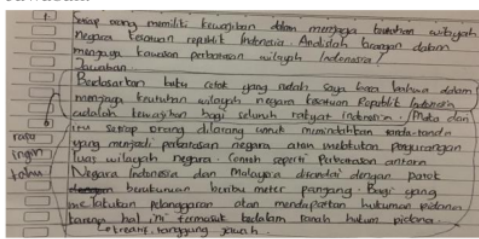 1. Setiap orang memiliki kewajiban dalam menjaga keutuhan wilayah
Negara kesatuan republik Indonesia. Analislah larangan dalam
menjaga kawasan perbatasan wilayah Indonesia!
Jawaban
Berdasarkan buku cetak yang sudah saya baca bahwa dalam
menjaga keutuhan wilayah negara kesatuan Republik Indonesia
adalah kewajiban bagi seluruh rakyat indonesia. Maka dari
itu setiap orang dilarang untuk memindahkan tanda-tanda
yang menjadi perbatasan negara atau melakukan pengurangan
luas wilayah negara. Contoh seperti Perbatasan antara
Negara Indonesia dan Malaysia ditandai dengan patok
berukuran beribu meter panjang. Bagi yang
melakukan pelanggaran akan mendapatkan hukuman pidana
karena hal ini termasuk kedalam ranah hukum pidana.
kreatif, tanggung jawab.
rasa
ingin
tahu